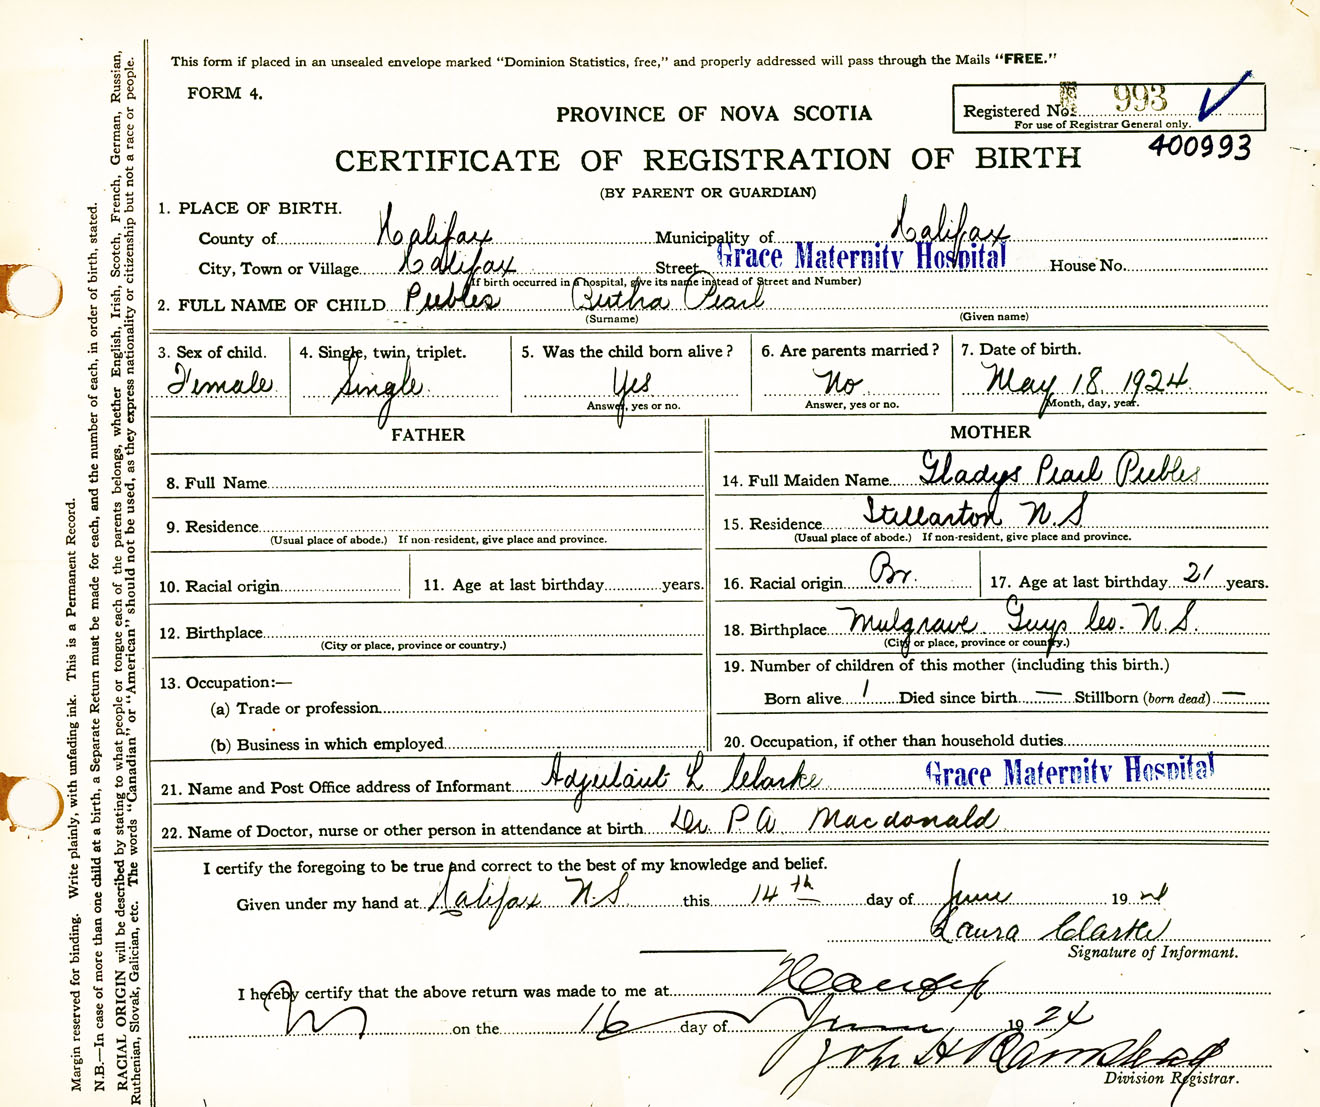 This form if placed in an unsealed envelope marked "Dominion Statistics, free," and properly addressed will pass through the Mails "FREE."
FORM 4.
PROVINCE OF NOVA SCOTIA
Registered No. 993
For use of Registrar General only.
400993
CERTIFICATE OF REGISTRATION OF BIRTH
(BY PARENT OR GUARDIAN)
1. PLACE OF BIRTH.
County of Halifax Municipality of Halifax
City, Town or Village Halifax Street Grace Maternity Hospital House No.
(If birth occurred in a hospital, give its name instead of Street and Number)
2. FULL NAME OF CHILD Peebles Bertha Pearl
(Surname) (Given name)
3. Sex of child. 4. Single, twin, triplet. 5. Was the child born alive? 6. Are parents married? 7. Date of birth.
Female Single Yes No May 18 1924
Answer, yes or no. Answer, yes or no. Month, day, year.
FATHER MOTHER
8. Full Name 14. Full Maiden Name Gladys Pearl Peebles
9. Residence 15. Residence Stellarton N.S
(Usual place of abode.) If non-resident, give place and province. (Usual place of abode.) If non-resident, give place and province.
10. Racial origin 11. Age at last birthday years. 16. Racial origin Br. 17. Age at last birthday 21 years.
12. Birthplace 18. Birthplace Mulgrave Guys Co. N.S.
(City or place, province or country.) (City or place, province or country.)
13. Occupation:— 19. Number of children of this mother (including this birth.)
(a) Trade or profession Born alive 1 Died since birth — Stillborn (born dead) —
(b) Business in which employed 20. Occupation, if other than household duties
21. Name and Post Office address of Informant Adjutant L Clarke Grace Maternity Hospital
22. Name of Doctor, nurse or other person in attendance at birth Dr. P A Macdonald
I certify the foregoing to be true and correct to the best of my knowledge and belief.
Given under my hand at Halifax N.S this 14th day of June 1924
Laura Clarke
Signature of Informant.
I hereby certify that the above return was made to me at Halifax
on the 16 day of June 1924
John H
Division Registrar.
Margin reserved for binding. Write plainly, with unfading ink. This is a Permanent Record.
N.B.—In case of more than one child at a birth, a Separate Return must be made for each, and the number of each, in order of birth, stated.
RACIAL ORIGIN will be described by stating to what people or tongue each of the parents belongs, whether English, Irish, Scotch, French, German, Russian,
Ruthenian, Slovak, Galician, etc. The words "Canadian" or "American" should not be used, as they express nationality or citizenship but not a race or people.